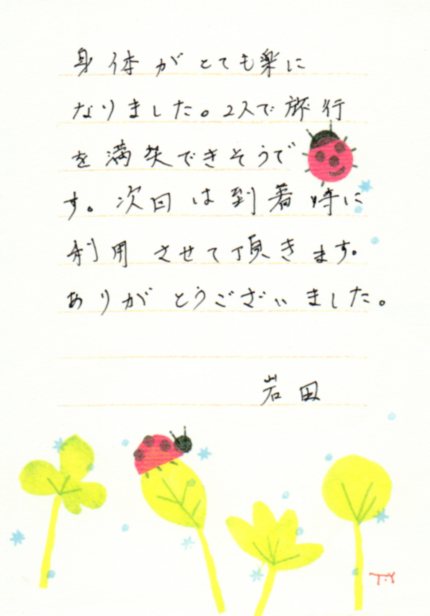 身体がとても楽に
なりました。2人で旅行
を満喫できそうで
す。次回は到着時に
利用させて頂きます。
ありがとうございました。
岩田
T.Y